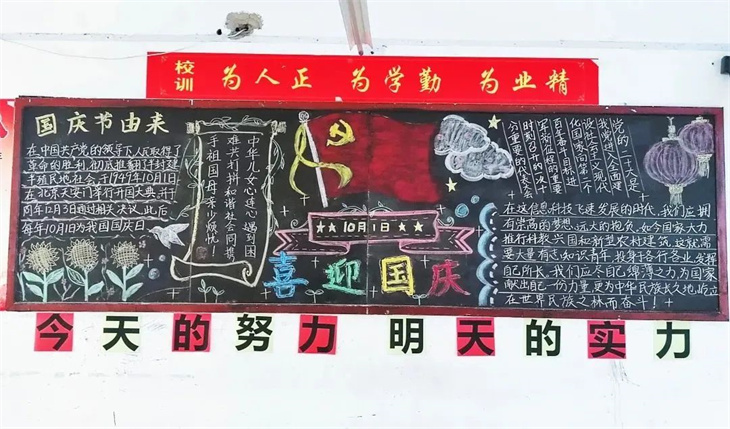 校训 为人正 为学勤 为业精
国庆节由来
在中国共产党的领导下人民取得了
革命的胜利,彻底推翻了半封建
半殖民地社会,于1949年10月1日
在北京天安门举行开国大典,并于
同年12月3日通过相关决议,此后
每年10月1为我国国庆日
中华儿女心连心,遇到困
难共打拼,和谐社会同携
手,祖国母亲少烦忧!
10月1日
喜迎国庆
党的二十大是
我党进入全面建
设社会主义现代
化国家向第二个
百年奋斗目标进
军新征程的重要
时刻召开的一次十
分重要的代表大会
在这信息科技飞速发展的时代,我们应拥
有崇高的梦想,远大的抱负,如今国家大力
推行科教兴国和新型农村建筑,这就需
要大量有志知识青年投身于各行各业发挥
自己所长,我们应尽自己绵薄之力为国家
献出自己一份力量,更为中华民族长久地屹立
在世界民族之林而奋斗!
今天的努力 明天的实力